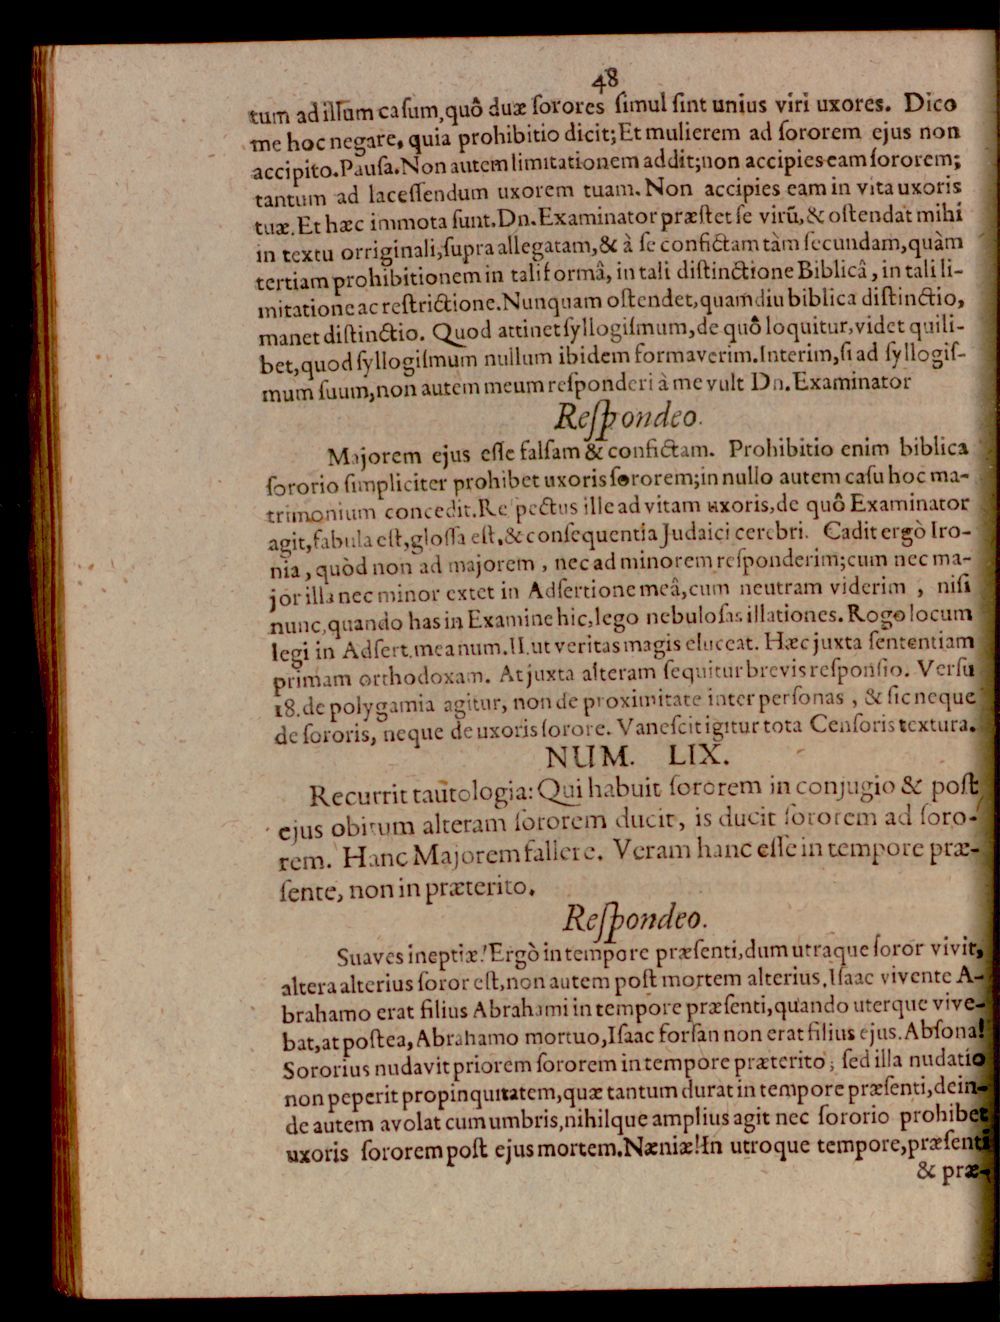 48
tum ad illum casum, quô duæ sorores simul sint unius viri uxores. Dico
me hoc negare, quia prohibitio dicit; Et mulierem ad sororem ejus non
accipito. Pausa. Non autem limitationem addit; non accipies eam sororem;
tantum ad lacessendum uxorem tuam. Non accipies eam in vita uxoris
tuæ. Et hæc immota sunt. Dn. Examinator præstet se virū, & ostendat mihi
in textu orriginali, supra allegatam, & à se confictam tàm secundam, quàm
tertiam prohibitionem in tali formâ, in tali distinctione Biblicâ, in tali li-
mitatione ac restrictione. Nunquam ostendet, quamdiu biblica distinctio,
manet distinctio. Quod attinet syllogismum, de quô loquitur, videt quili-
bet, quod syllogismum nullum ibidem formaverim. Interim, si ad syllogis-
mum suum, non autem meum responderi à me vult Dn. Examinator
Respondeo.
Majorem ejus esse falsam & confictam. Prohibitio enim biblica
sororio simpliciter prohibet uxoris sororem; in nullo autem casu hoc ma-
trimonium concedit. Re pectus ille ad vitam uxoris, de quô Examinator
agit, fabula est, glossa est, & consequentia Judaici cerebri. Cadit ergò Iro-
nia, quòd non ad majorem, nec ad minorem responderim; cum nec ma-
jor illa nec minor extet in Adsertione meâ, cum neutram viderim, nisi
nunc, quando has in Examine hic, lego nebulosas illationes. Rogo locum
legi in Adsert. mea num. II. ut veritas magis eluceat. Hæc juxta sententiam
primam orthodoxam. At juxta alteram sequitur brevis responsio. Versu
18. de polygamia agitur, non de proximitate inter personas, & sic neque
de sororis, neque de uxoris sorore. Vanescit igitur tota Censoris textura.
NUM. LIX.
Recurrit tautologia: Qui habuit sororem in conjugio & post
ejus obitum alteram sororem ducit, is ducit sororem ad soro-
rem. Hanc Majorem fallere. Veram hanc esse in tempore præ-
sente, non in præterito.
Respondeo.
Suaves ineptiæ! Ergò in tempore præsenti, dum utraque soror vivit,
altera alterius soror est, non autem post mortem alterius. Isaac vivente A-
brahamo erat filius Abrahami in tempore præsenti, quando uterque vive-
bat, at postea, Abrahamo mortuo, Isaac forsan non erat filius ejus. Absona!
Sororius nudavit priorem sororem in tempore præterito; sed illa nudatio
non peperit propinquitatem, quæ tantum durat in tempore præsenti, dein-
de autem avolat cum umbris, nihilque amplius agit nec sororio prohibet
uxoris sororem post ejus mortem. Næniæ! In utroque tempore, præsenti
& præ-